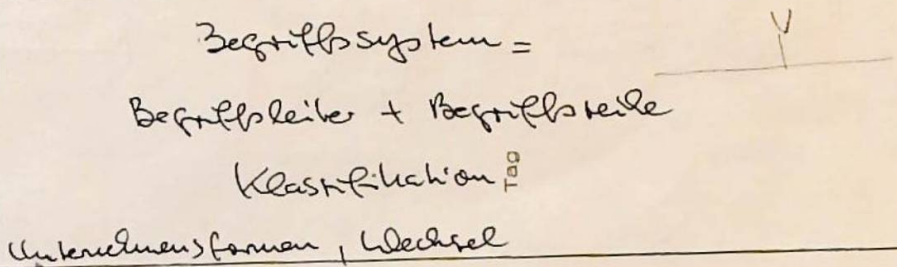 Begriffssystem =
V
Begriffsleiter + Begriffsreihe
Klassifikation
Tag
Unternehmensformen, Wechsel